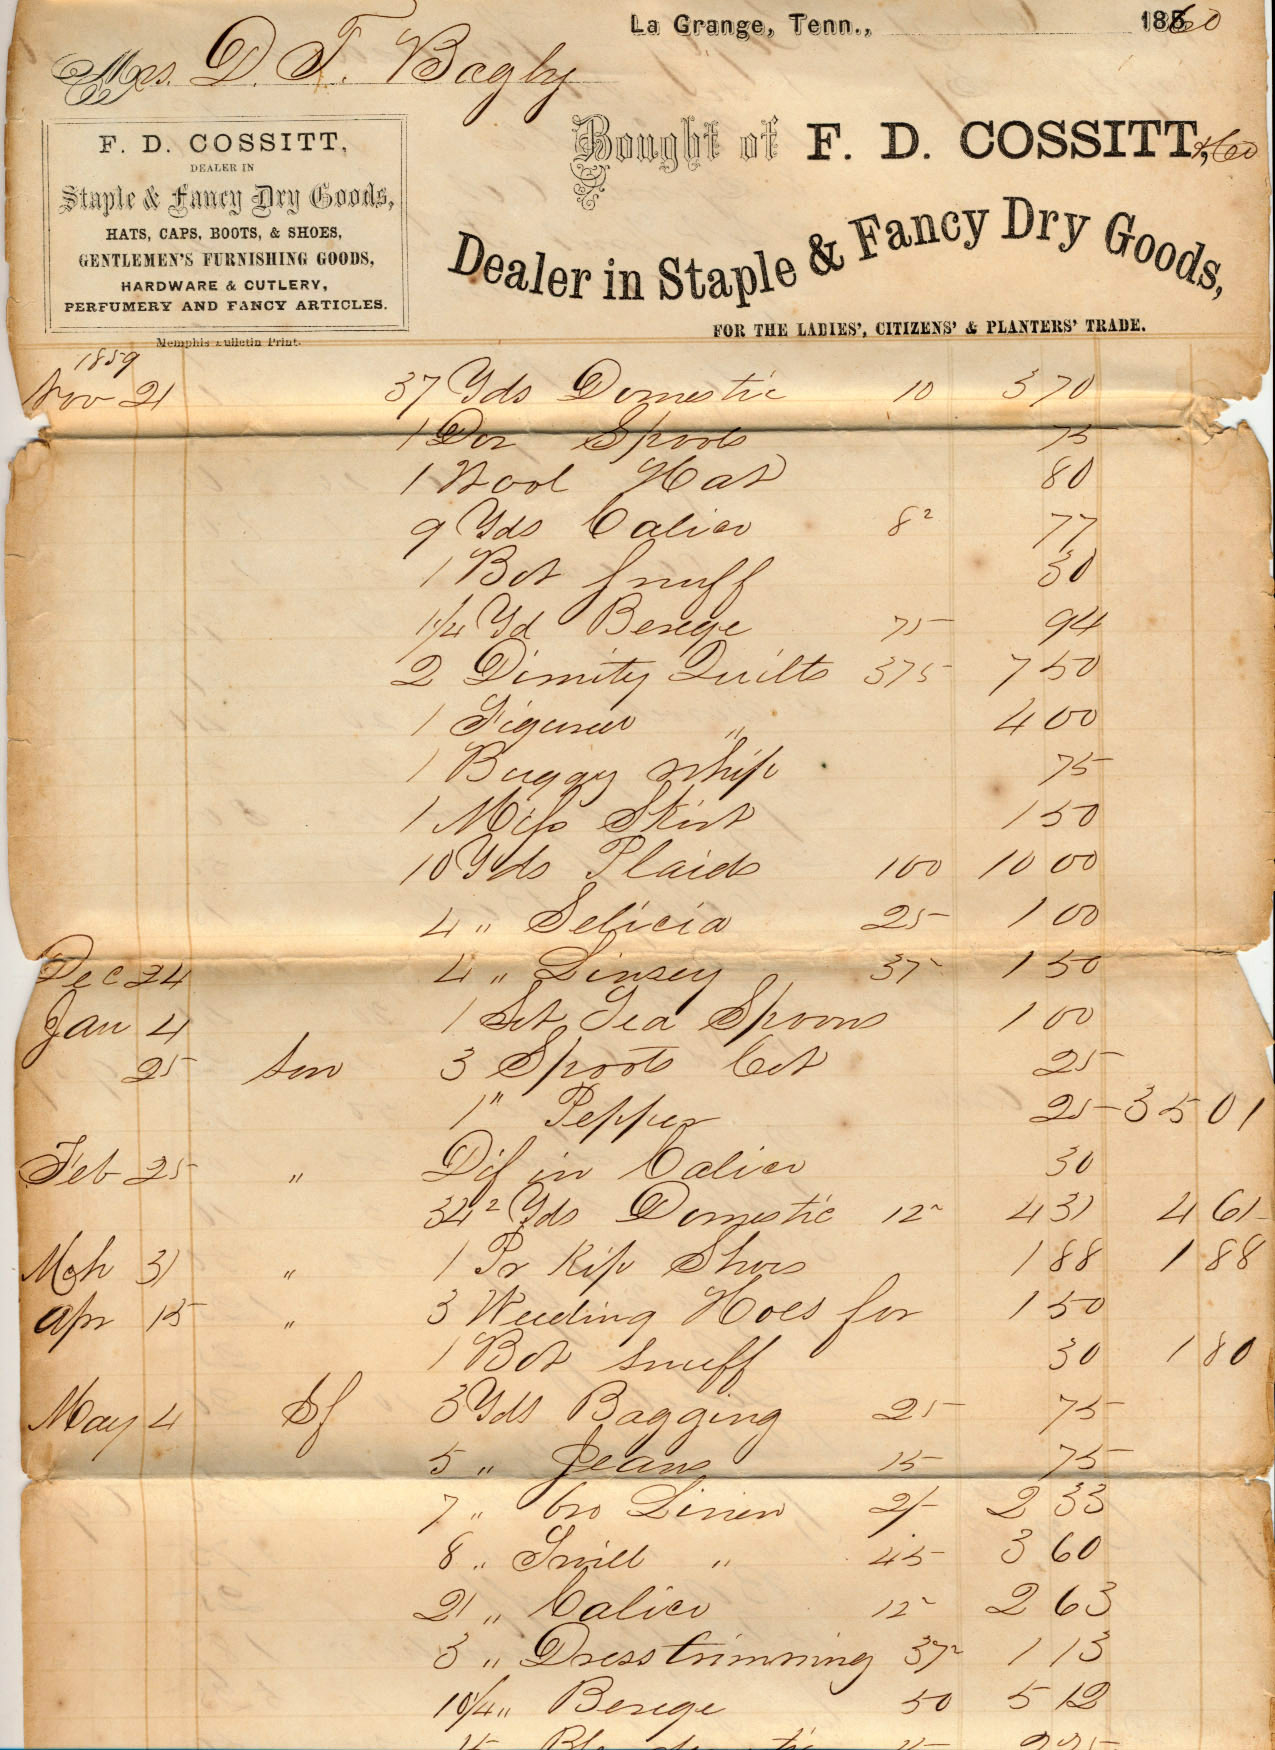 La Grange, Tenn., 1860
Mrs. D. T. Bagby
F. D. COSSITT,
DEALER IN
Staple & Fancy Dry Goods,
HATS, CAPS, BOOTS, & SHOES,
GENTLEMEN'S FURNISHING GOODS,
HARDWARE & CUTLERY,
PERFUMERY AND FANCY ARTICLES.
Memphis Bulletin Print.
Bought of F. D. COSSITT, & Co
Dealer in Staple & Fancy Dry Goods,
FOR THE LADIES', CITIZENS' & PLANTERS' TRADE.
1859
Nov 21 37 Yds Domestic 10 3 70
1 Doz Spools 75
1 Wool Hat 80
9 Yds Calico 8² 77
1 Bot Snuff 30
1 1/4 Yd Berege 75 94
2 Dimity Quilts 375 7 50
1 Figured " 4 00
1 Buggy Whip 75
1 Miss Skirt 1 50
10 Yds Plaids 100 10 00
4 " Selicia 25 1 00
Dec 24 4 " Linsey 37 1 50
Jan 4 1 Set Tea Spoons 1 00
25 Son 3 Spools Cot 25
1 " Pepper 25 35 01
Feb 25 " Dif in Calico 30
34² Yds Domestic 12² 4 31 4 61
Mch 31 " 1 Pr Kip Shoes 1 88 1 88
Apr 15 " 3 Weeding Hoes for 1 50
1 Bot Snuff 30 1 80
May 4 Sf 3 Yds Bagging 25 75
5 " Jeans 15 75
7 " bro Linen 2/- 2 33
8 " " 45 3 60
21 " Calico 12² 2 63
3 " Dress trimming 37² 1 13
10 1/4 " Berege 50 5 12